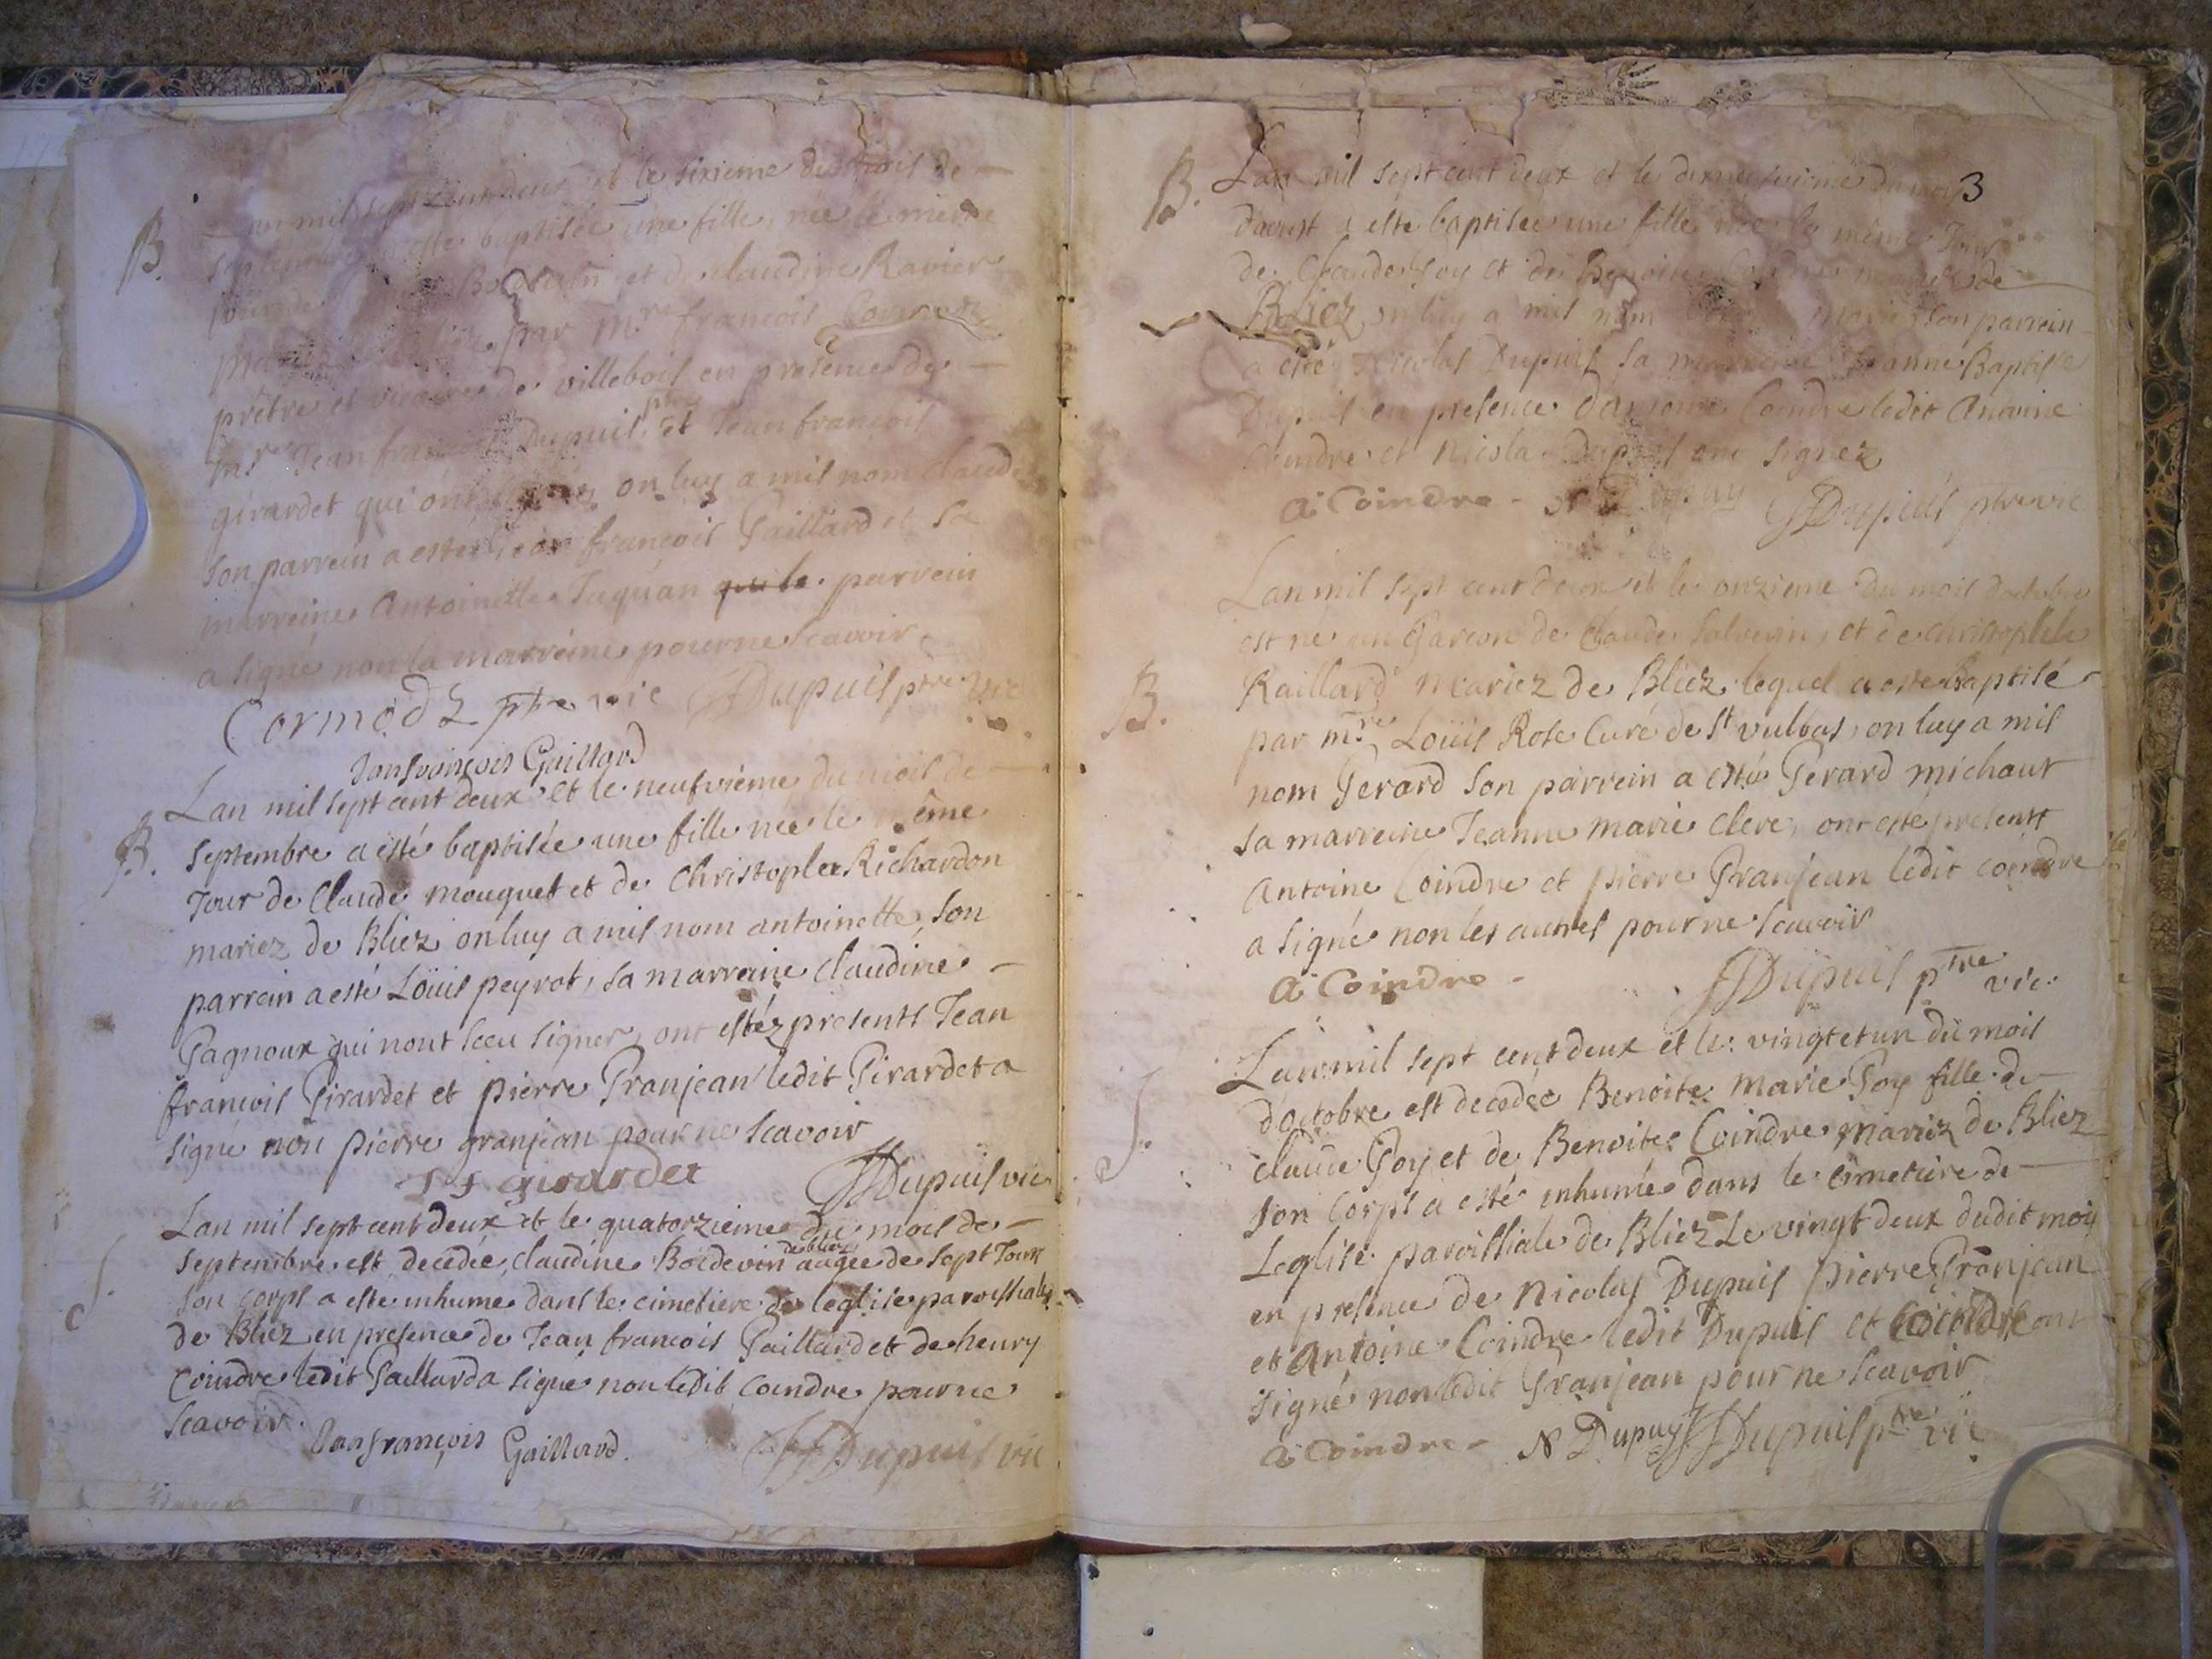 B.
mil sept cent deux et le sixieme du mois de
septembre este baptisée une fille, née le meme
et de claudine Ravier
par mre francois Cormod
prêtre et vicaire de villebois en presence de
mre Jean francois Dupuis ptre et Jean francois
girardet qui ont on luy a mis nom claud
son parrein a esté Jean francois Gaillard et sa
marreine Antoinette Juquan qui le parrein
a signé non la marreine pour ne scavoir
Cormod ptre vic JfDupuis ptre vic
Janfrançois Gaillard
Lan mil sept cent deux et le neufvième du mois de
B. septembre a esté baptisée une fille née le même
Jour de Claude mouquet et de Christophlee Richardon
mariez de Bliez on luy a mis nom antoinette, son
parrein a esté Loüis peyrot, sa marreine claudine
Gagnoux qui nont sceu signer, ont estéz presents Jean
francois Girardet et pierre Granjean ledit Girardet a
signé non pierre granjean pour ne scavoir
J f girardet JfDupuis vic
Lan mil sept cent deux et le quatorzieme du mois de
S. septembre est decedée, claudine Boidevin de bliez augée de sept Jours
son corps a este inhume dans le cimetiere de leglise paroissiale
de Bliez en presence de Jean francois Gaillard et de henry
Coindre ledit Gaillard a signe non ledit coindre pour ne
scavoir.
Janfrançois Gaillard. JfDupuis vic
3
B. Lan mil sept cent deux et le dixneufvieme du mois
daoust a esté baptisée une fille née le même Jour
de Claude Goy et de Benoite Coindre mariez de
Bliez, on luy a mis nom marie son parrein
a esté Nicolas Dupuis sa marreine Jeanne Baptiste
Dupuis en presence dantoine Coindre ledit Antoine
Coindre et Nicolas Dupuis ont signez
A Coindre - N Dupuy JfDupuis ptre vic
Lan mil sept cent deux et le onzieme du mois doctobre
est ne un Garcon de Claude Salverin, et de christophlée
B. Raillard mariez de Bliez lequel a este Baptisé
par mre Loüis Rose Curé de St vulbas, on luy a mis
nom Gerard son parrein a esté Gerard michaut
sa marreine Jeanne marie clerc, ont esté presents
Antoine Coindre et pierre Granjean ledit coindre
a signé non les autres pour ne scavoir
A Coindre - JfDupuis ptre vic.
Lan mil sept cent deux et le vingt et un du mois
S. doctobre est decedée Benoite marie Goy fille de
claude Goy et de Benoite Coindre mariez de Bliez
son corps a esté inhumé dans le cimetiere de
Leglise paroissiale de Bliez Le vingt deux dudit mois
en presence de Nicolas Dupuis pierre Granjean
et Antoine Coindre ledit Dupuis et Coindre ont
signé non ledit Granjean pour ne scavoir
A Coindre - N Dupuy JfDupuis ptre vic